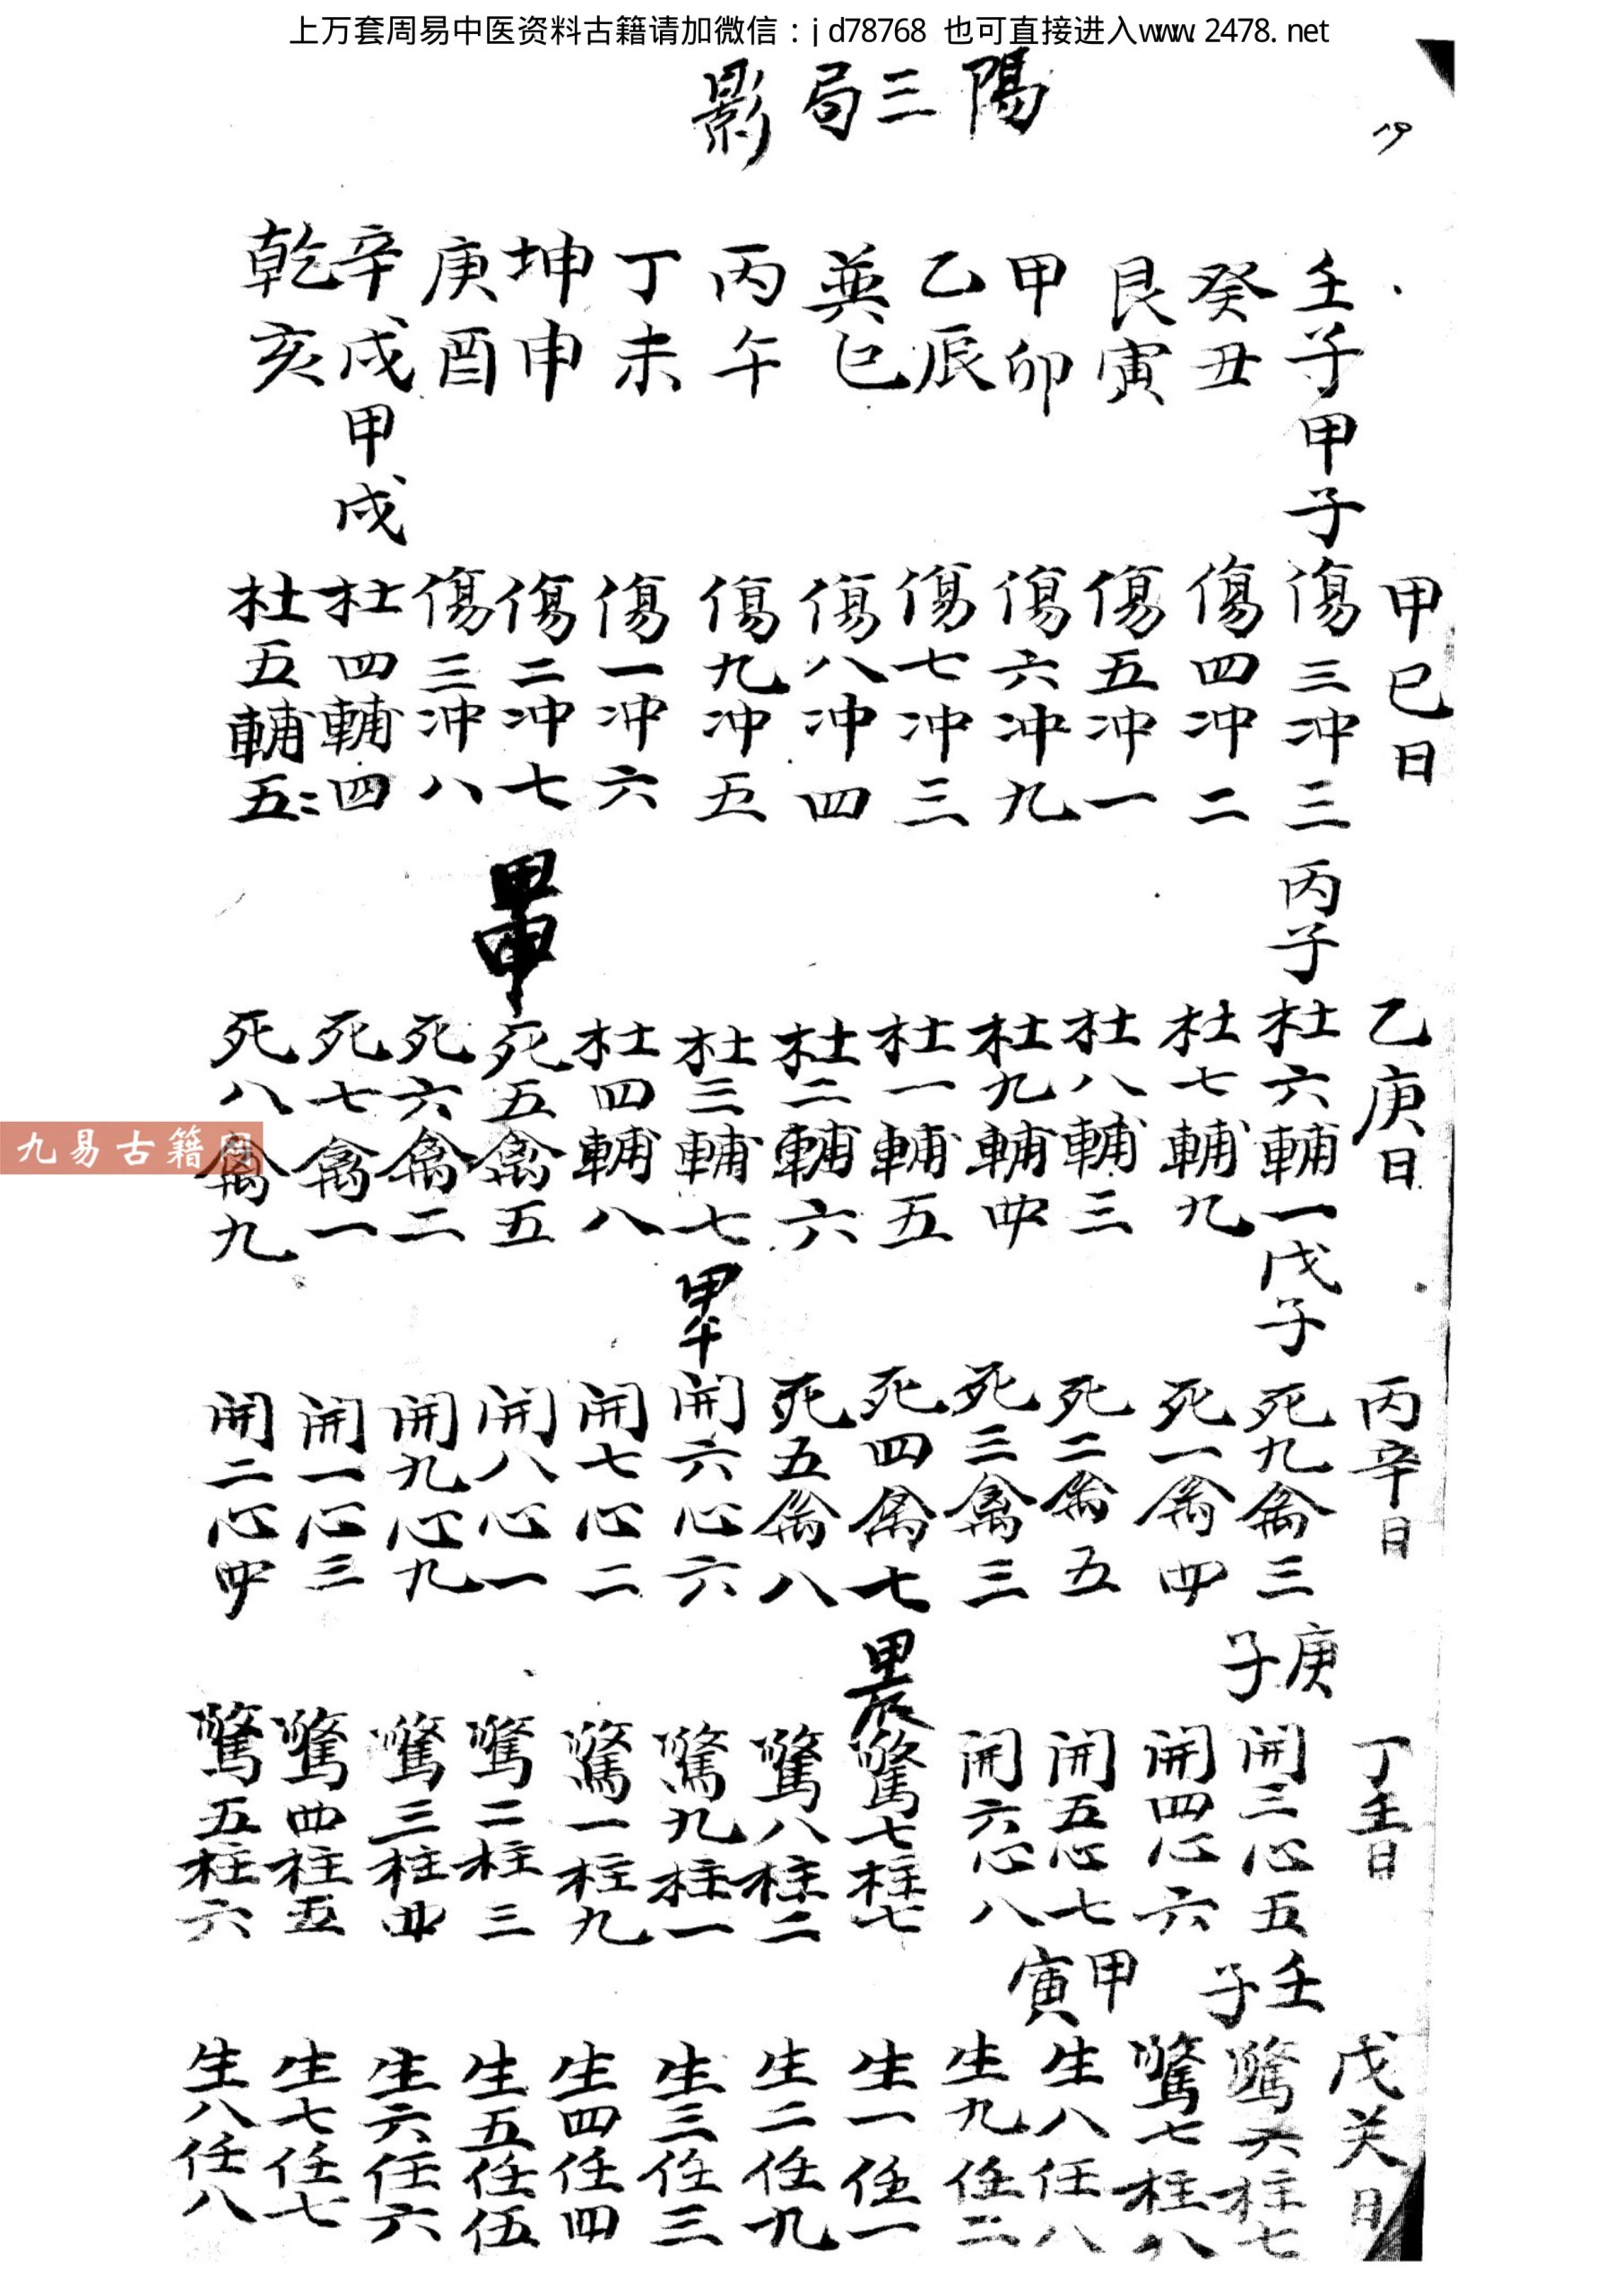 上万套周易中医资料古籍请加微信：jd78768 也可直接进入www.2478.net
陽三局影
19
甲巳日
乙庚日
丙辛日
丁壬日
戊癸日
壬子甲子傷三冲三丙子杜六輔一戊子死九禽三庚子開三心五壬子驚六柱七
癸丑傷四冲二杜七輔九死一禽四開四心六驚七柱八
艮寅傷五冲一杜八輔三死二禽五開五心七甲寅生八任八
甲卯傷六冲九杜九輔四死三禽三開六心八生九任二
乙辰傷七冲三杜一輔五死四禽七甲辰驚七柱七生一任一
巽巳傷八冲四杜二輔六死五禽八驚八柱二生二任九
丙午傷九冲五杜三輔七甲午開六心六驚九柱一生三任三
丁未傷一冲六杜四輔八開七心二驚一柱九生四任四
坤申傷二冲七甲申死五禽五開八心一驚二柱三生五任伍
庚酉傷三冲八死六禽二開九心九驚三柱四生六任六
辛戌甲戌杜四輔四死七禽一開一心三驚四柱五生七任七
乾亥杜五輔五死八禽九開二心四驚五柱六生八任八
九易古籍网